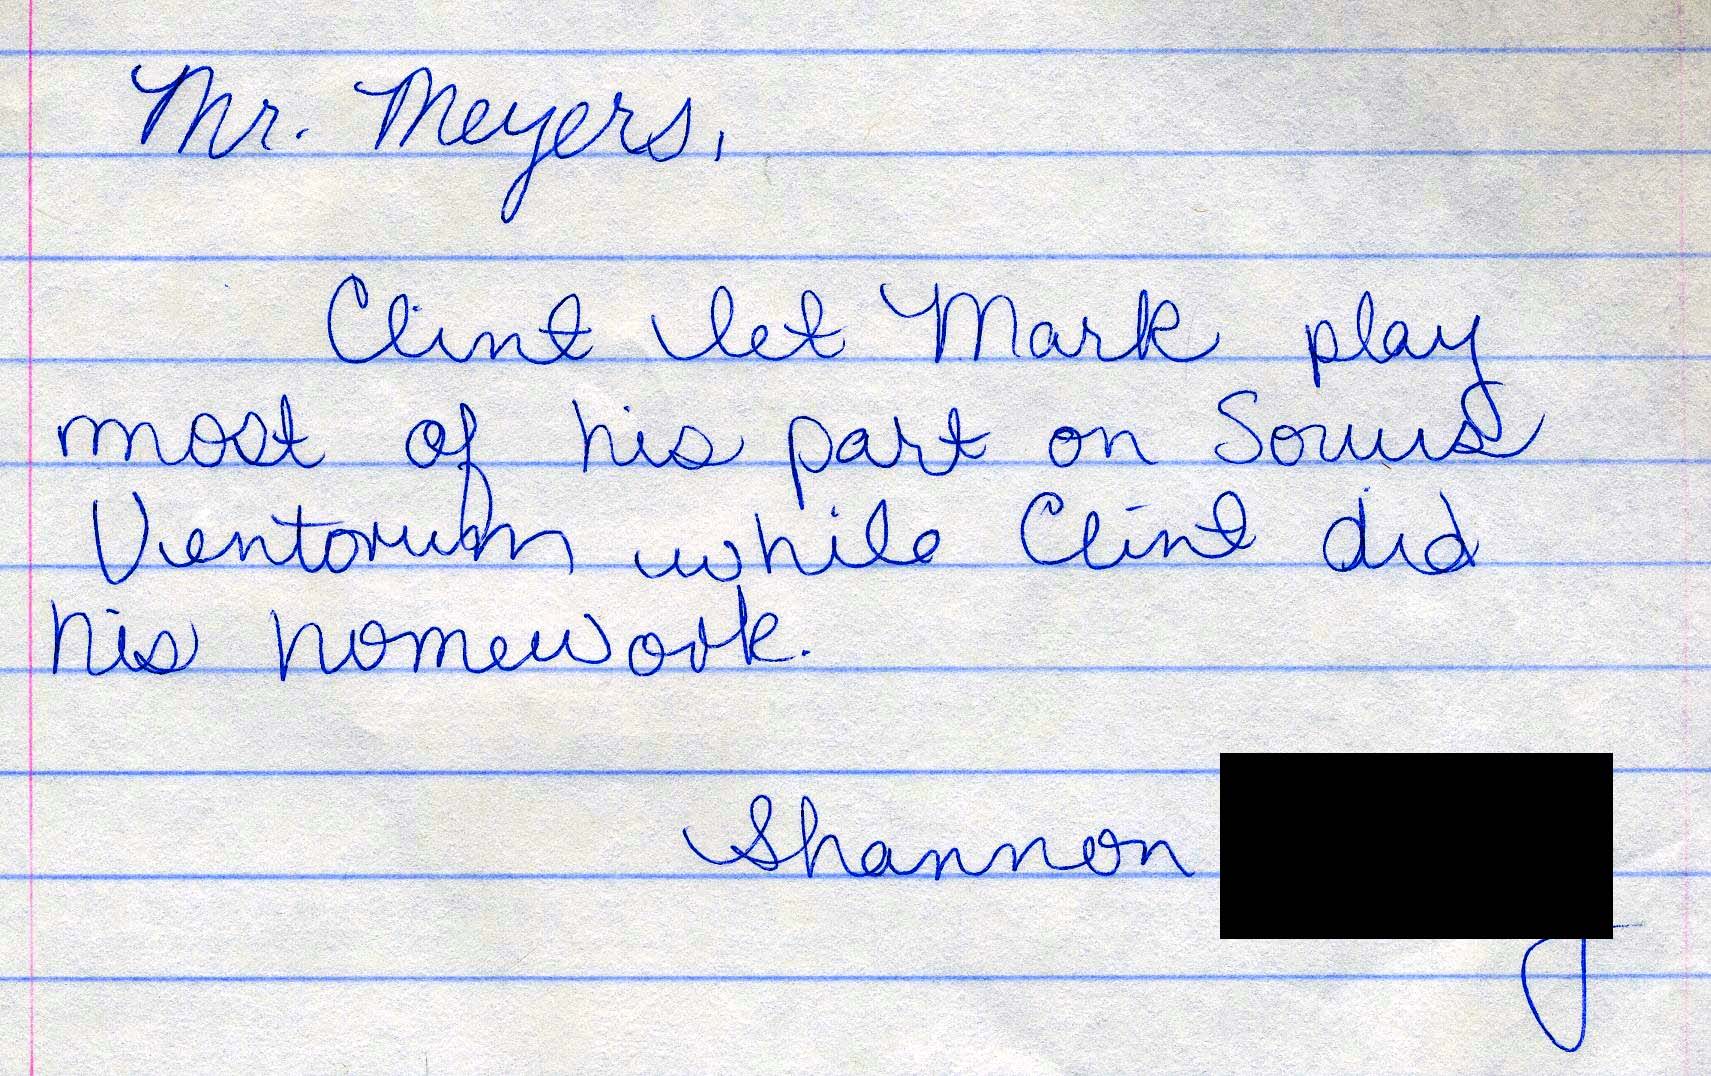 Mr. Meyers,
Clint let Mark play
most of his part on Sonus
Ventorum while Clint did
his homework.
Shannon